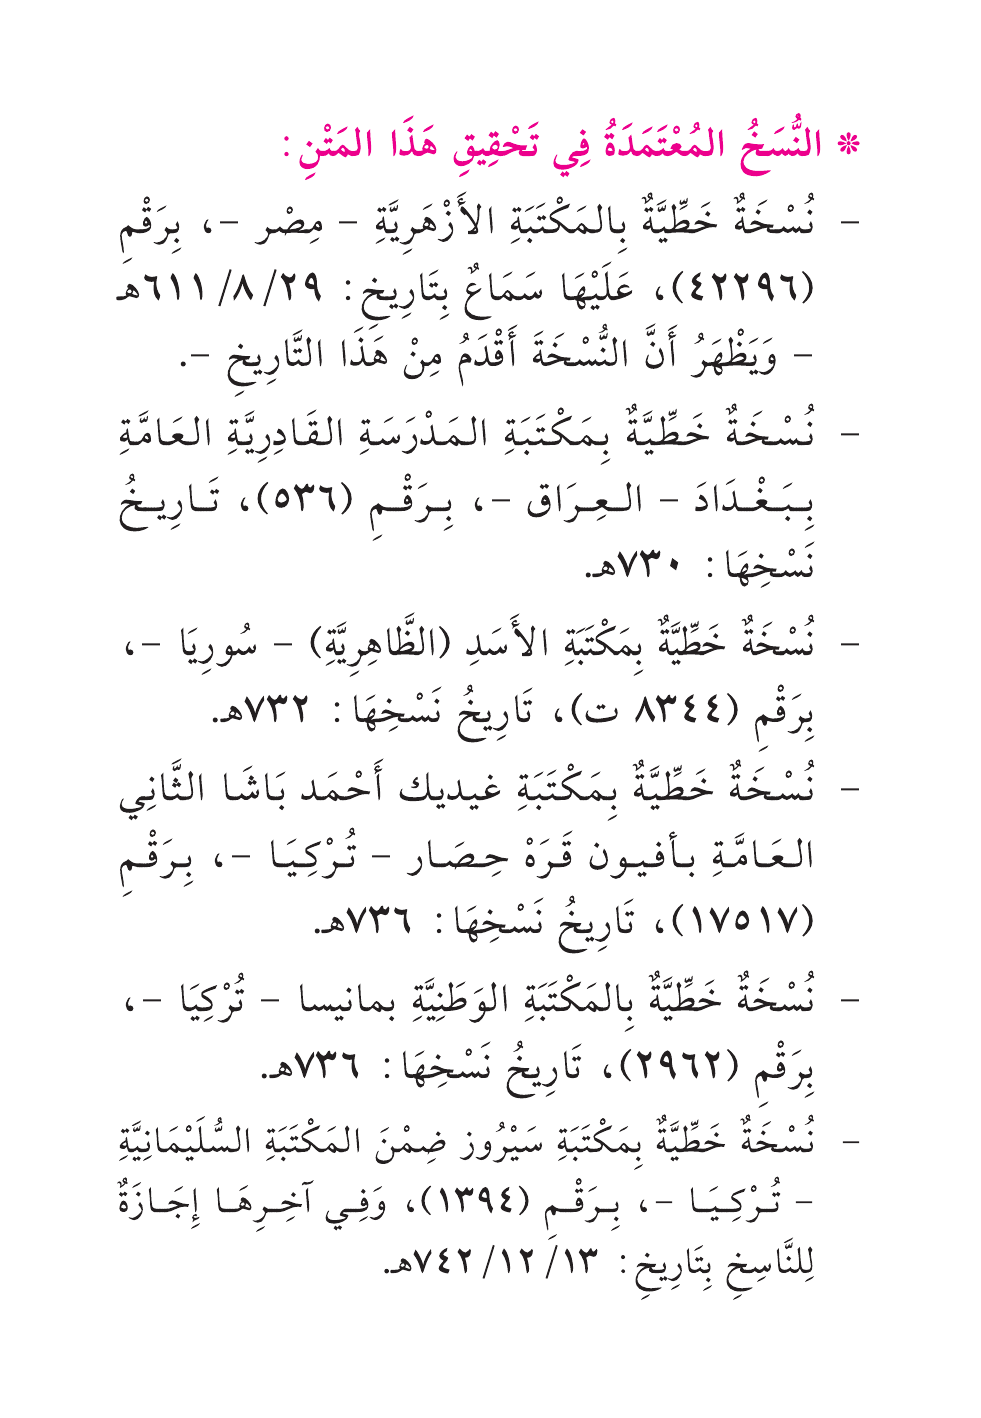 * النُّسَخُ المُعْتَمَدَةُ فِي تَحْقِيقِ هَذَا المَتْنِ:
- نُسْخَةٌ خَطِّيَّةٌ بِالمَكْتَبَةِ الأَزْهَرِيَّةِ - مِصْر -، بِرَقْمِ
(٤٢٢٩٦)، عَلَيْهَا سَمَاعٌ بِتَارِيخِ: ٢٩/ ٨/ ٦١١هـ
- وَيَظْهَرُ أَنَّ النُّسْخَةَ أَقْدَمُ مِنْ هَذَا التَّارِيخِ -.
- نُسْخَةٌ خَطِّيَّةٌ بِمَكْتَبَةِ المَدْرَسَةِ القَادِرِيَّةِ العَامَّةِ
بِبَغْدَادَ - العِرَاق -، بِرَقْمِ (٥٣٦)، تَارِيخُ
نَسْخِهَا: ٧٣٠هـ.
- نُسْخَةٌ خَطِّيَّةٌ بِمَكْتَبَةِ الأَسَدِ (الظَّاهِرِيَّةِ) - سُورِيَا -،
بِرَقْمِ (٨٣٤٤ ت)، تَارِيخُ نَسْخِهَا: ٧٣٢هـ.
- نُسْخَةٌ خَطِّيَّةٌ بِمَكْتَبَةِ غيديك أَحْمَد بَاشَا الثَّانِي
العَامَّةِ بأفيون قَرَهْ حِصَار - تُرْكِيَا -، بِرَقْمِ
(١٧٥١٧)، تَارِيخُ نَسْخِهَا: ٧٣٦هـ.
- نُسْخَةٌ خَطِّيَّةٌ بِالمَكْتَبَةِ الوَطَنِيَّةِ بمانيسا - تُرْكِيَا -،
بِرَقْمِ (٢٩٦٢)، تَارِيخُ نَسْخِهَا: ٧٣٦هـ.
- نُسْخَةٌ خَطِّيَّةٌ بِمَكْتَبَةِ سَيْرُوز ضِمْنَ المَكْتَبَةِ السُّلَيْمَانِيَّةِ
- تُرْكِيَا -، بِرَقْمِ (١٣٩٤)، وَفِي آخِرِهَا إِجَازَةٌ
لِلنَّاسِخِ بِتَارِيخِ: ١٣/ ١٢/ ٧٤٢هـ.